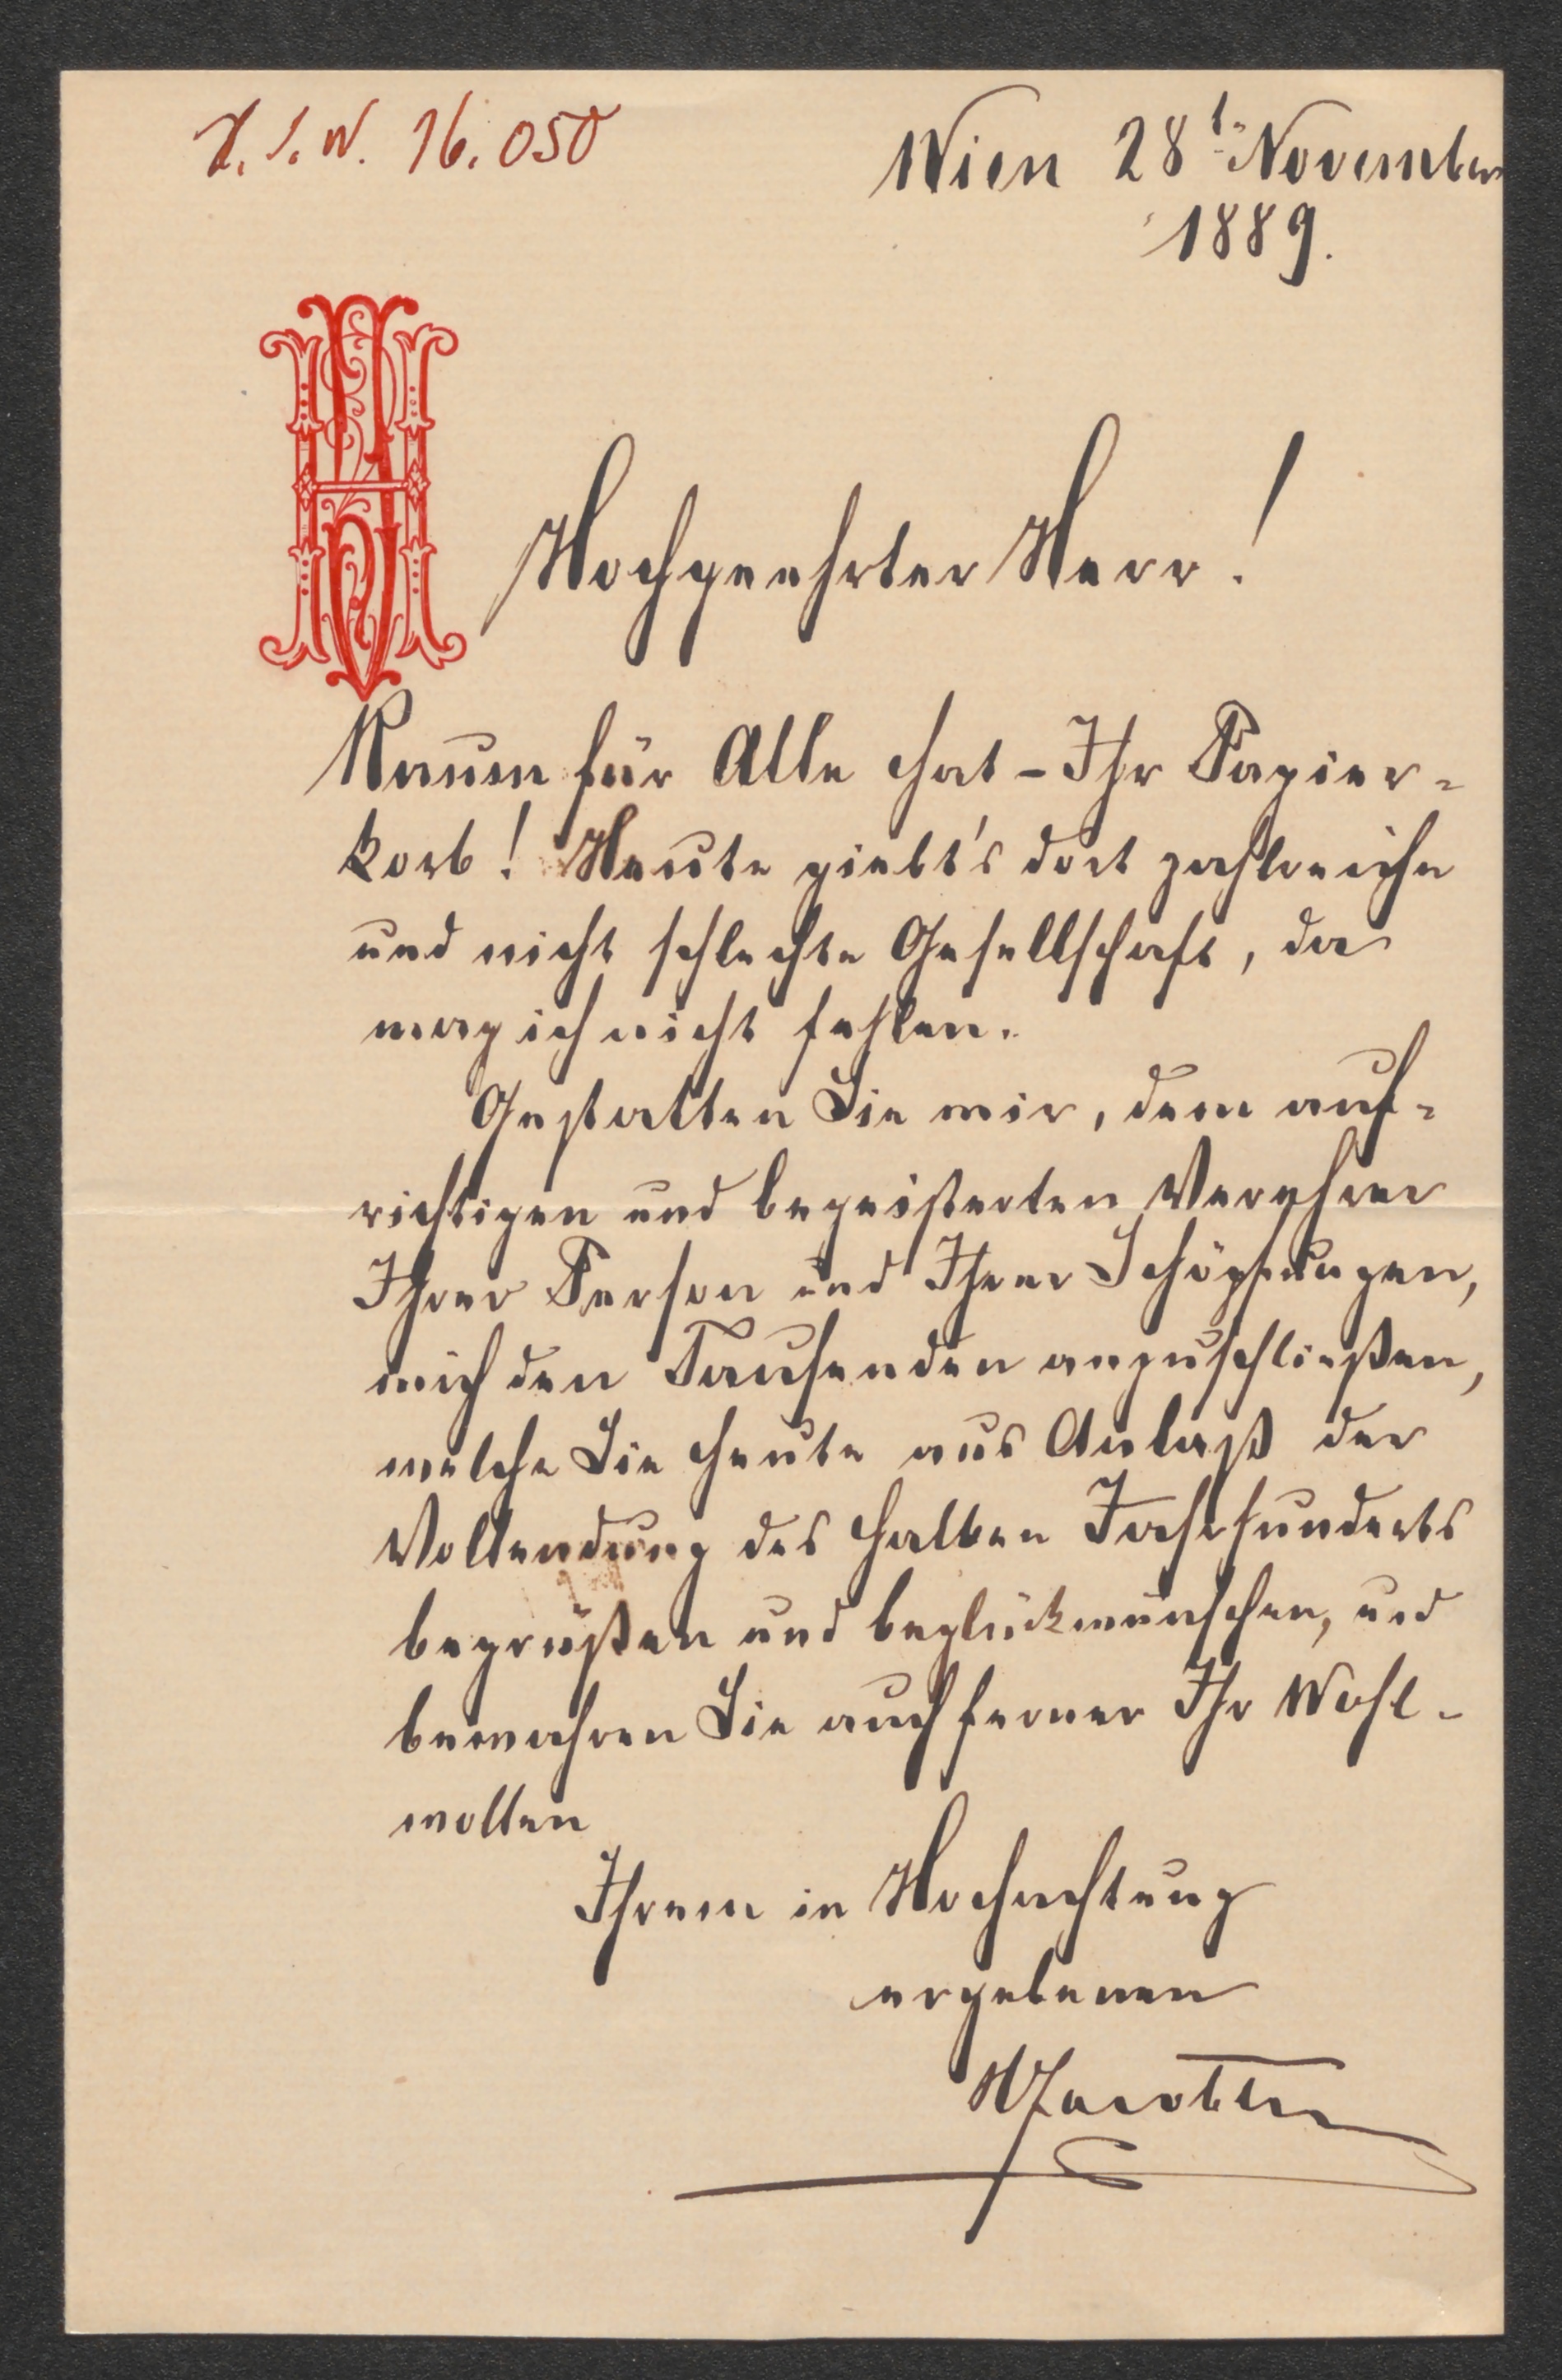 J. N. 16.050
Wien 28t November
1889.
Hochgeehrter Herr!
Raum für Alle hat – Ihr Papier-
korb! Heute giebt's dort zahlreiche
und nicht schlechte Gesellschaft, da
mag ich nicht fehlen.
Gestatten Sie mir, dem auf-
richtigen und begeisterten Verehrer
Ihrer Person und Ihrer Schöpfungen,
mich den Tausenden anzuschließen,
welche Sie heute aus Anlaß der
Vollendung des halben Jahrhunderts
begrüßen und beglückwünschen, und
bewahren Sie auch ferner Ihr Wohl-
wollen
Ihrem in Hochachtung
ergebenen